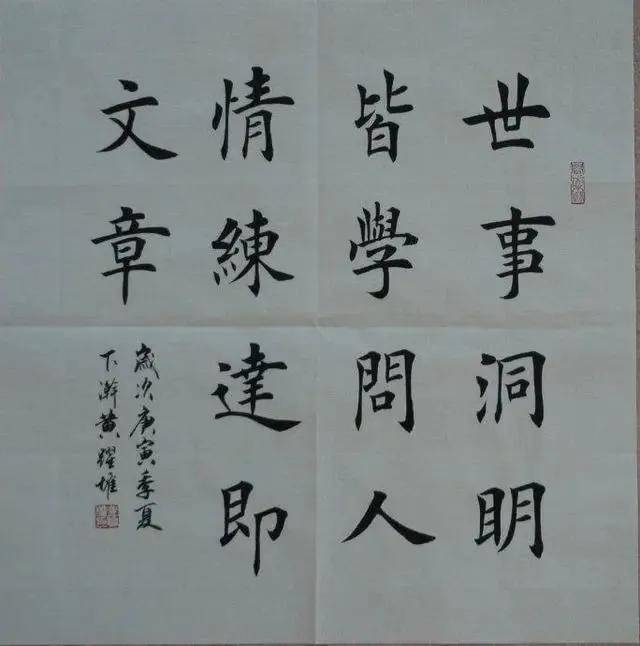 世事洞眀
皆學問人
情練達即
文章
歲次庚寅季夏
下澣黄